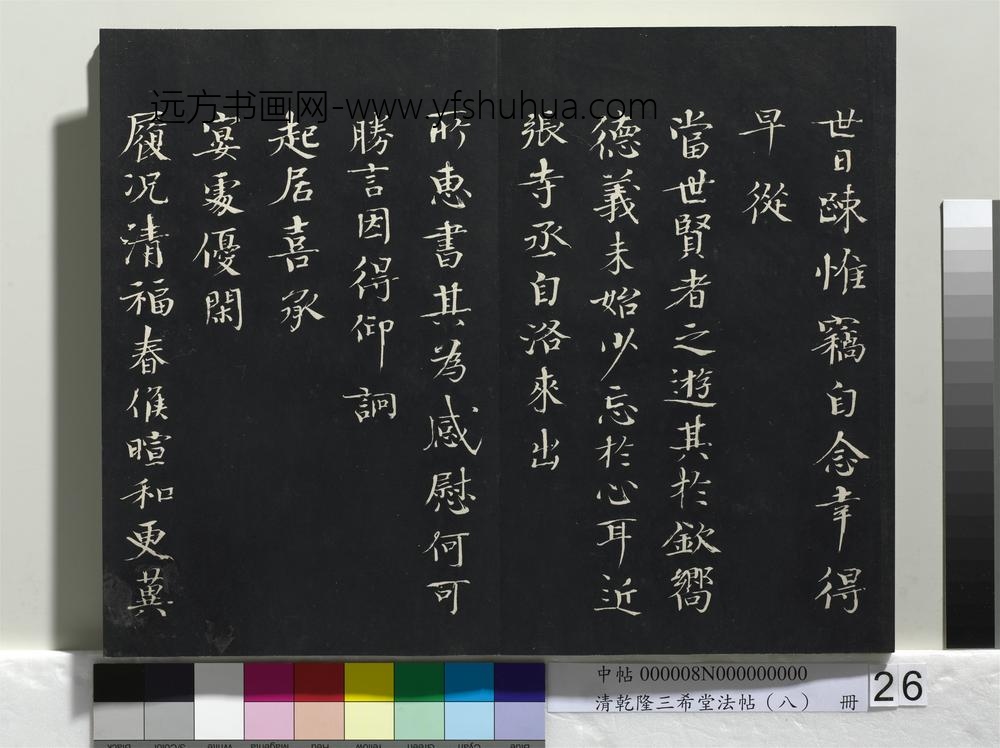 世日踈惟竊自念幸得
早從
當世賢者之遊其於欽嚮
德義未始少忘於心耳近
張寺丞自洛來出
所惠書其為感慰何可
勝言因得仰詗
起居喜承
宴處優閑
履況清福春候暄和更冀
远方书画网-www.yfshuhua.com
中帖 000008N000000000
清乾隆三希堂法帖（八） 冊
26
Black
3/Color
White
Magenta
Red
Yellow
Green
Cyan
Blue